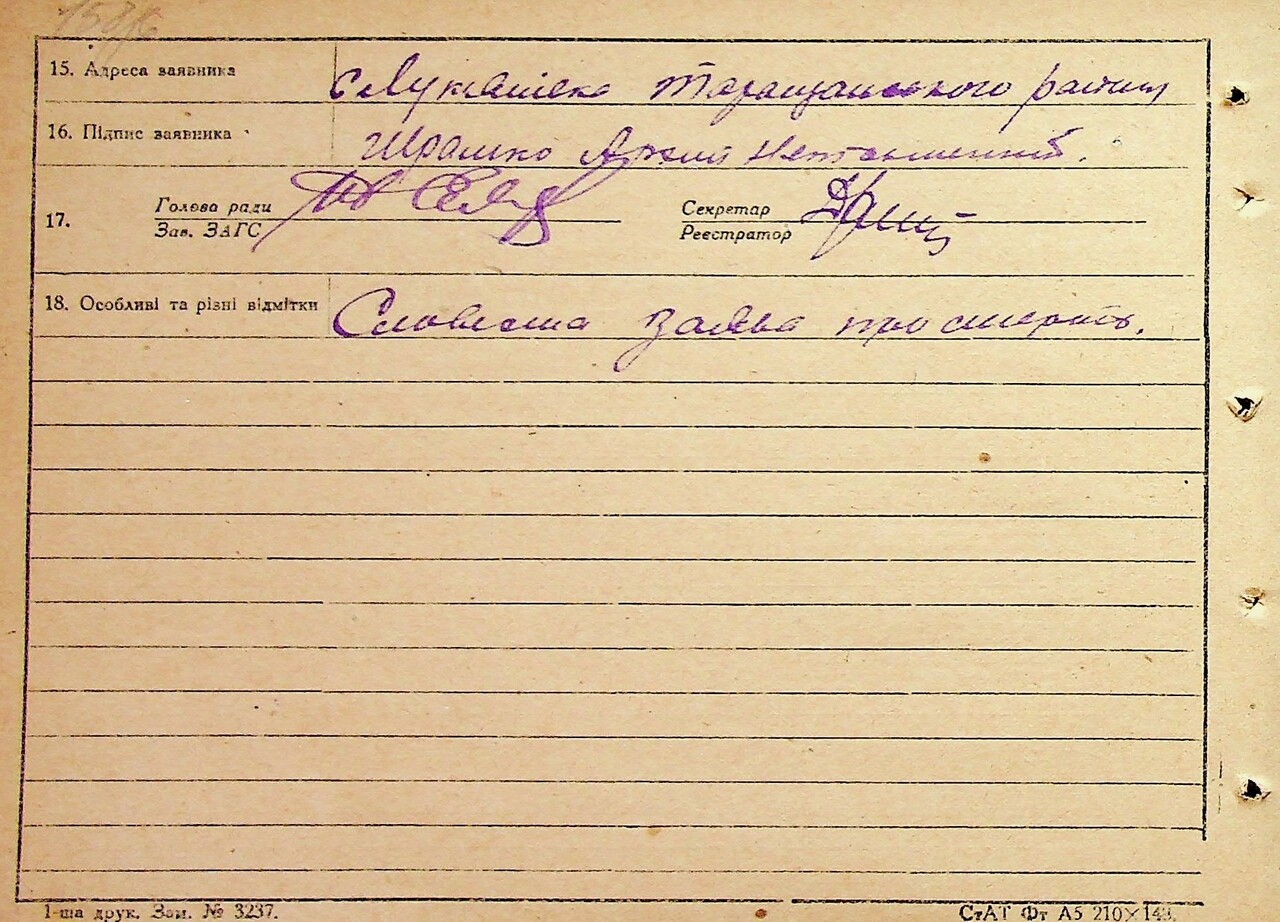 15. Адреса заявника с Лукашівка Таращанського району
16. Підпис заявника Неписьменний.
17. Голова ради Секретар
Зав. ЗАГС Реєстратор
18. Особливі та різні відмітки Словесна заява про смерть.
1-ша друк. Зам. № 3237. СтАТ Фт А5 210×148.